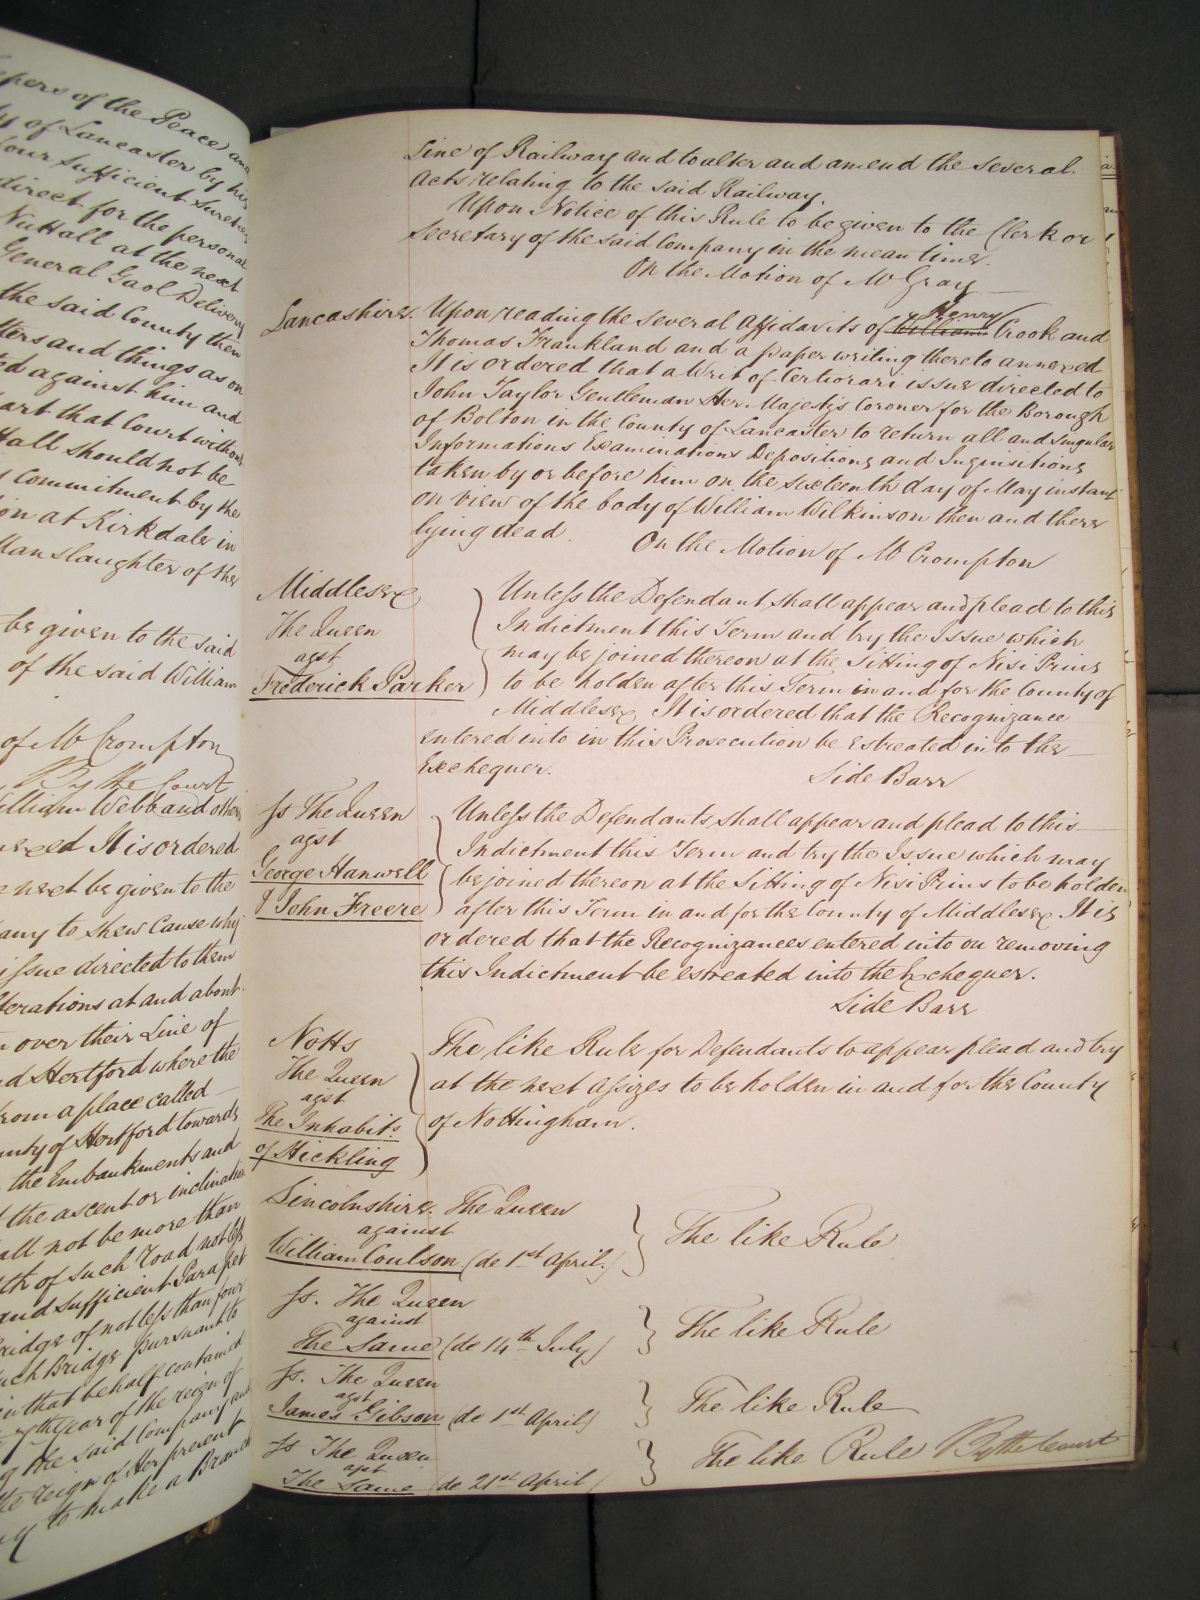 epers of the Peace and
ty of Lancaster by his
four sufficient Sureties
direct for the personal
Nuttall at the next
General Gaol Delivery
the said County then
tters and things as on
ed against him and
art that Court without
ttall should not be
s commitment by the
ion at Kirkdale in
Manslaughter of the
be given to the said
of the said William
of Mr Crompton
By the Court
William Webb and others
nexed It is ordered
e next be given to the
any to shew Cause why
issue directed to them
lterations at and about
n over their Line of
nd Hertford where the
from a place called
unty of Hertford towards
the Embankments and
the ascent or inclination
all not be more than
th of such road not less
and sufficient Parapet
Bridge of not less than four
such Bridge pursuant to
in that behalf contained
7th year of the reign of
g the said Company and
the reign of Her present
ny to make a Branch
Line of Railway and to alter and amend the several
Acts relating to the said Railway.
Upon Notice of this Rule to be given to the Clerk or
Secretary of the said Company in the mean time.
On the Motion of Mr Gray
Lancashire. Upon reading the several Affidavits of William Henry Crook and
Thomas Frankland and a paper writing thereto annexed
It is ordered that a Writ of Certiorari issue directed to
John Taylor Gentleman Her Majestys Coroner for the Borough
of Bolton in the County of Lancaster to return all and singular
Informations Examinations Depositions and Inquisitions
taken by or before him on the sixteenth day of May instant
on view of the body of William Wilkinson then and there
lying dead. On the Motion of Mr Crompton
Middlesex
The Queen
agst
Frederick Parker
Unless the Defendant shall appear and plead to this
Indictment this Term and try the Issue which
may be joined thereon at the Sitting of Nisi Prius
to be holden after this Term in and for the County of
Middlesex It is ordered that the Recognizance
entered into in this Prosecution be estreated into the
Exchequer.
Side Barr
Ss The Queen
agst
George Hanwell
& John Freere
Unless the Defendants shall appear and plead to this
Indictment this Term and try the Issue which may
be joined thereon at the Sitting of Nisi Prius to be holden
after this Term in and for the County of Middlesex It is
ordered that the Recognizances entered into on removing
this Indictment be estreated into the Exchequer.
Side Barr
Notts
The Queen
agst
The Inhabits.
of Hickling
The like Rule for Defendants to appear plead and try
at the next Assizes to be holden in and for the County
of Nottingham.
Lincolnshire. The Queen
against
William Coulson (de 1st April.)
The like Rule
Ss. The Queen
against
The Same (de 14th July)
The like Rule
Ss. The Queen
agst
James Gibson (de 1st April)
The like Rule
Ss The Queen
agst
The Same (de 21st April
The like Rule By the Court